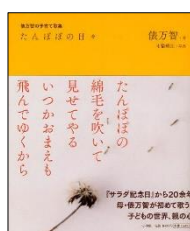 俵万智の子育て歌集
たんぽぽの日々
俵万智 著
たんぽぽの
綿毛を吹いて
見せてやる
いつかおまえも
飛んでゆくから
『サラダ記念日』から20余年
母・俵万智が初めて歌う
子どもの世界、親の心